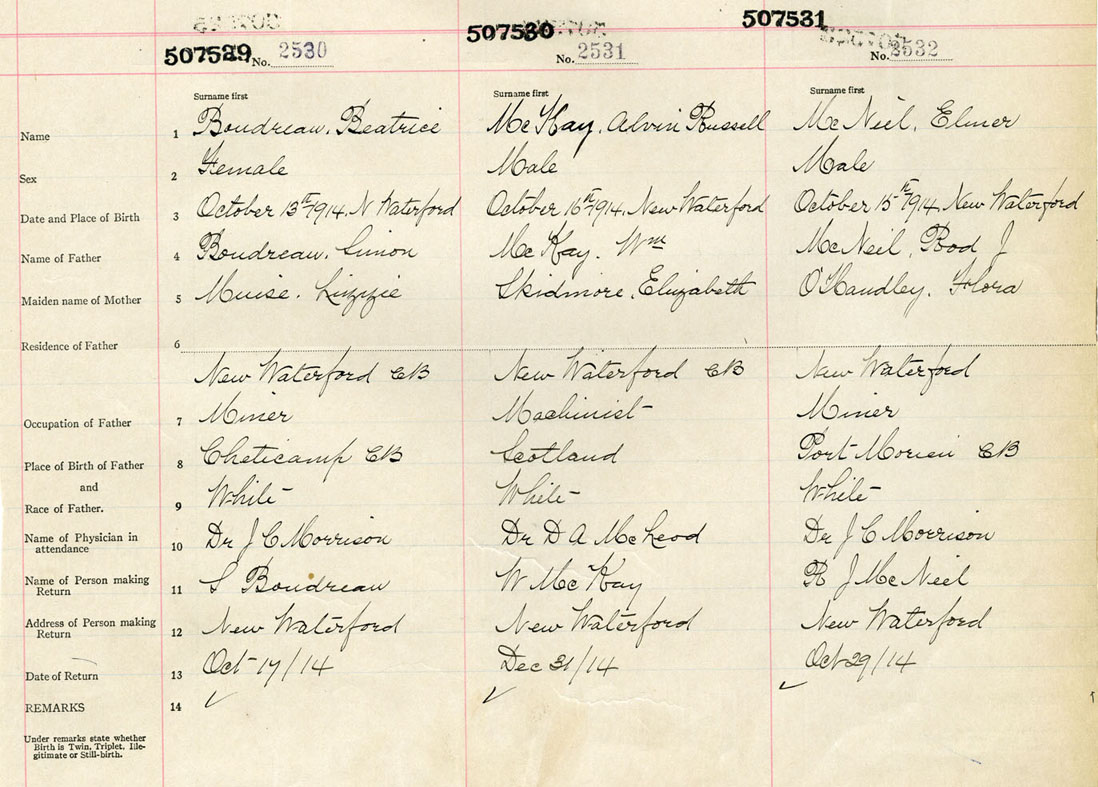 507529 No. 2530 507530 No. 2531 507531 No. 2532
Surname first Surname first Surname first
Name 1 Boudreau, Beatrice McKay, Alvin Russell McNeil, Elmer
Sex 2 Female Male Male
Date and Place of Birth 3 October 13th 1914, N Waterford October 16th 1914, New Waterford October 15th 1914, New Waterford
Name of Father 4 Boudreau, Simon McKay, Wm McNeil, Rod J
Maiden name of Mother 5 Muise, Lizzie Skidmore, Elizabeth O'Handley, Flora
Residence of Father 6
New Waterford CB New Waterford CB New Waterford
Occupation of Father 7 Miner Machinist Miner
Place of Birth of Father 8 Cheticamp CB Scotland Port Morien CB
and
Race of Father. 9 White White White
Name of Physician in
attendance 10 Dr J C Morrison Dr D A McLeod Dr J C Morrison
Name of Person making
Return 11 S Boudreau W McKay R J McNeil
Address of Person making
Return 12 New Waterford New Waterford New Waterford
Date of Return 13 Oct 17/14 Dec 31/14 Oct 29/14
REMARKS 14
Under remarks state whether
Birth is Twin, Triplet, Ille-
gitimate or Still-birth.